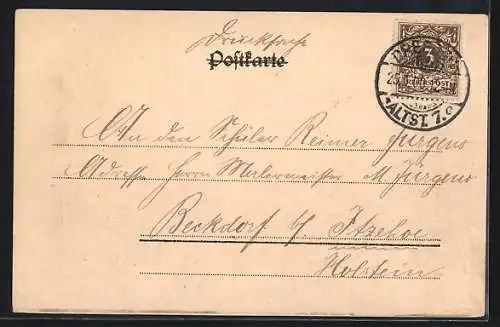 Drucksache
Postkarte
3
ALTST. 7.
An den Schüler Reimer Jürgens
Adresse Herrn Malermeister M Jürgens
Beckdorf b/ Itzehoe
Holstein